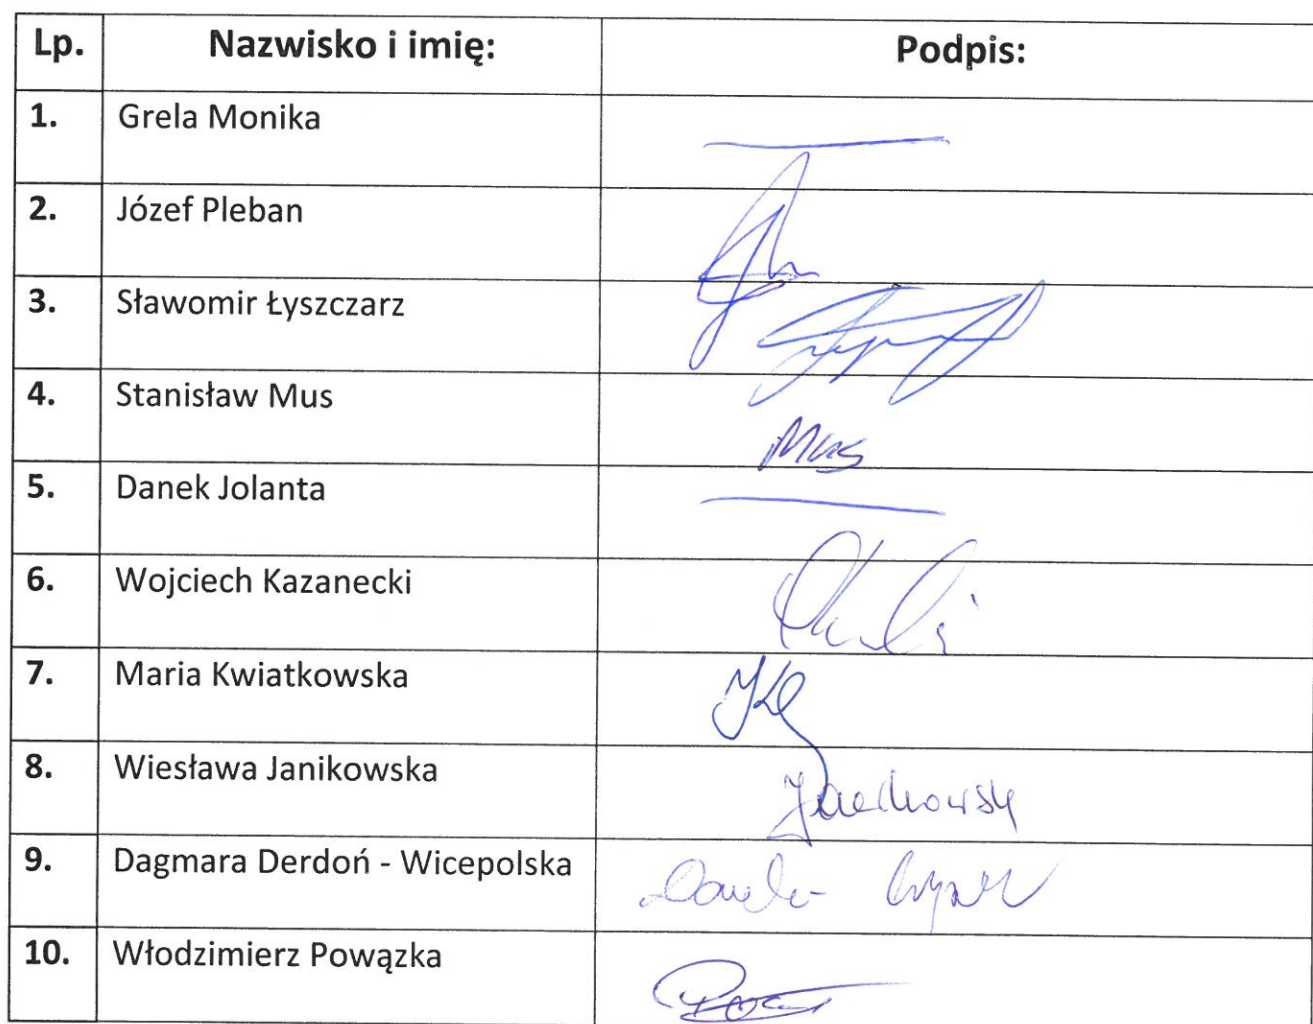 Lp. Nazwisko i imię: Podpis:
1. Grela Monika
2. Józef Pleban
3. Sławomir Łyszczarz
4. Stanisław Mus Mus
5. Danek Jolanta
6. Wojciech Kazanecki
7. Maria Kwiatkowska
8. Wiesława Janikowska
9. Dagmara Derdoń - Wicepolska
10. Włodzimierz Powązka